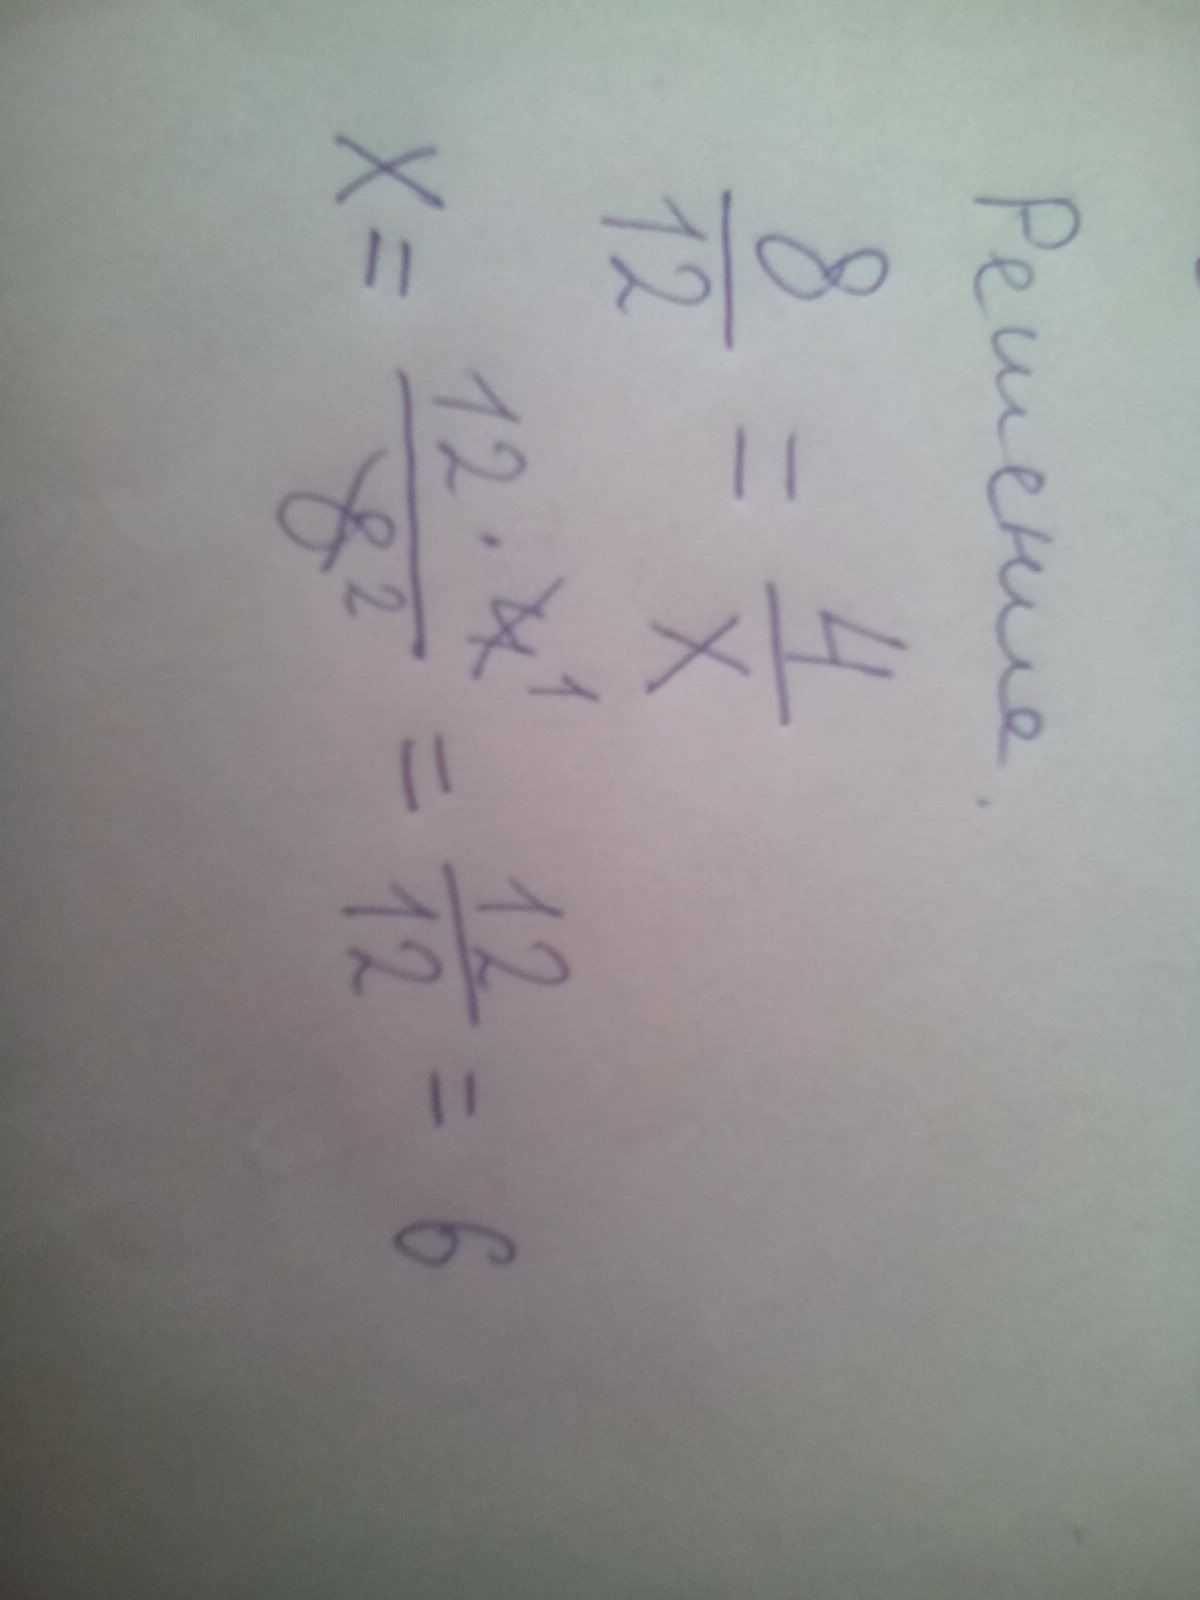 Решение.
8/12 = 4/x
x = 12·4¹/8² = 12/12 = 6